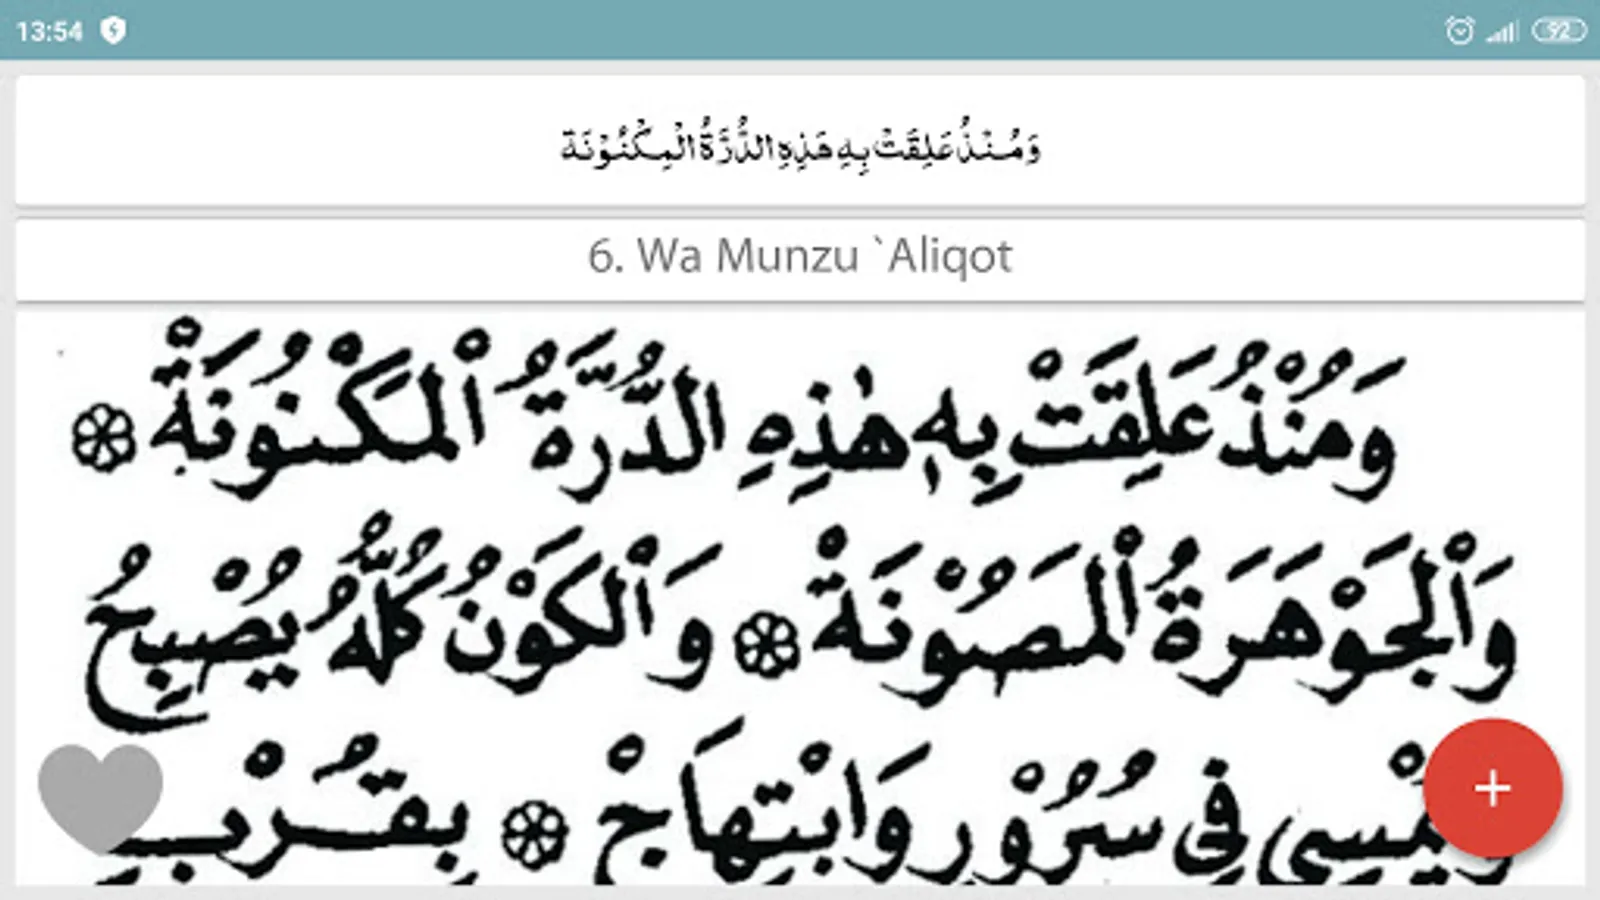 13:54
92
وَمُنْذُ عَلِقَتْ بِهِ هَذِهِ الدُّرَّةُ الْمِكْنُوْنَة
6. Wa Munzu `Aliqot
وَمُنْذُ عَلِقَتْ بِهٖ هٰذِهِ الدُّرَّةُ اْلمَكْنُونَةْ ۞
وَاْلجَوْهَرَةُ اْلمَصُوْنَةْ ۞ وَاْلكَوْنُ كُلُّهُ يُصْبِحُ
وَيُمْسِي فِي سُرُوْرٍ وَابْتِهَاجْ ۞ بِقُرْبِ
+